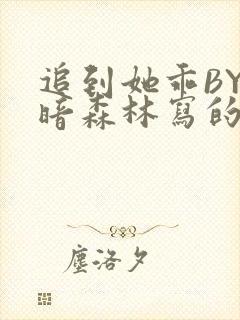 追到她乖BY
暗森林寫的
塵洛夕